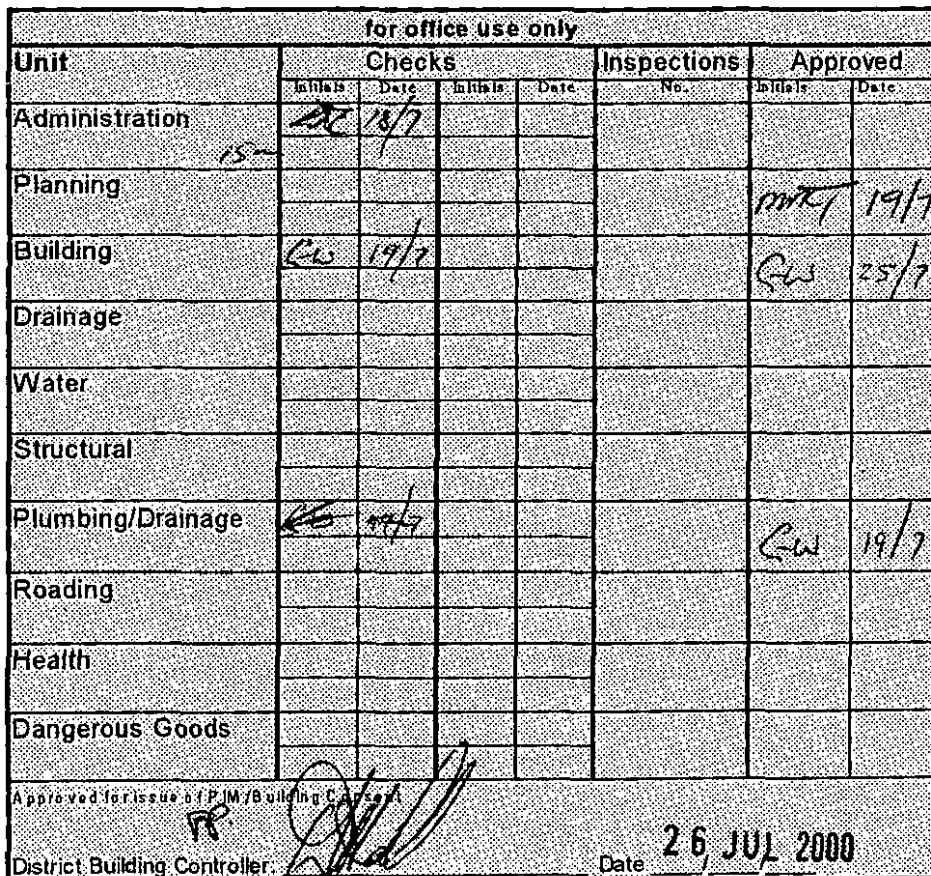 for office use only
Unit Checks Inspections Approved
Initials Date Initials Date No. Initials Date
Administration 18/7
15m
Planning 19/7
Building GW 19/7 GW 25/7
Drainage
Water
Structural
Plumbing/Drainage GW 19/7
Roading
Health
Dangerous Goods
Approved for issue of PIM/Building Consent
pp.
District Building Controller: Date 26 JUL 2000